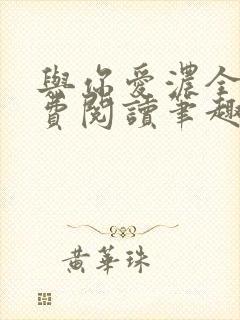 與你愛濃全
費閱讀筆趣
黃華珠